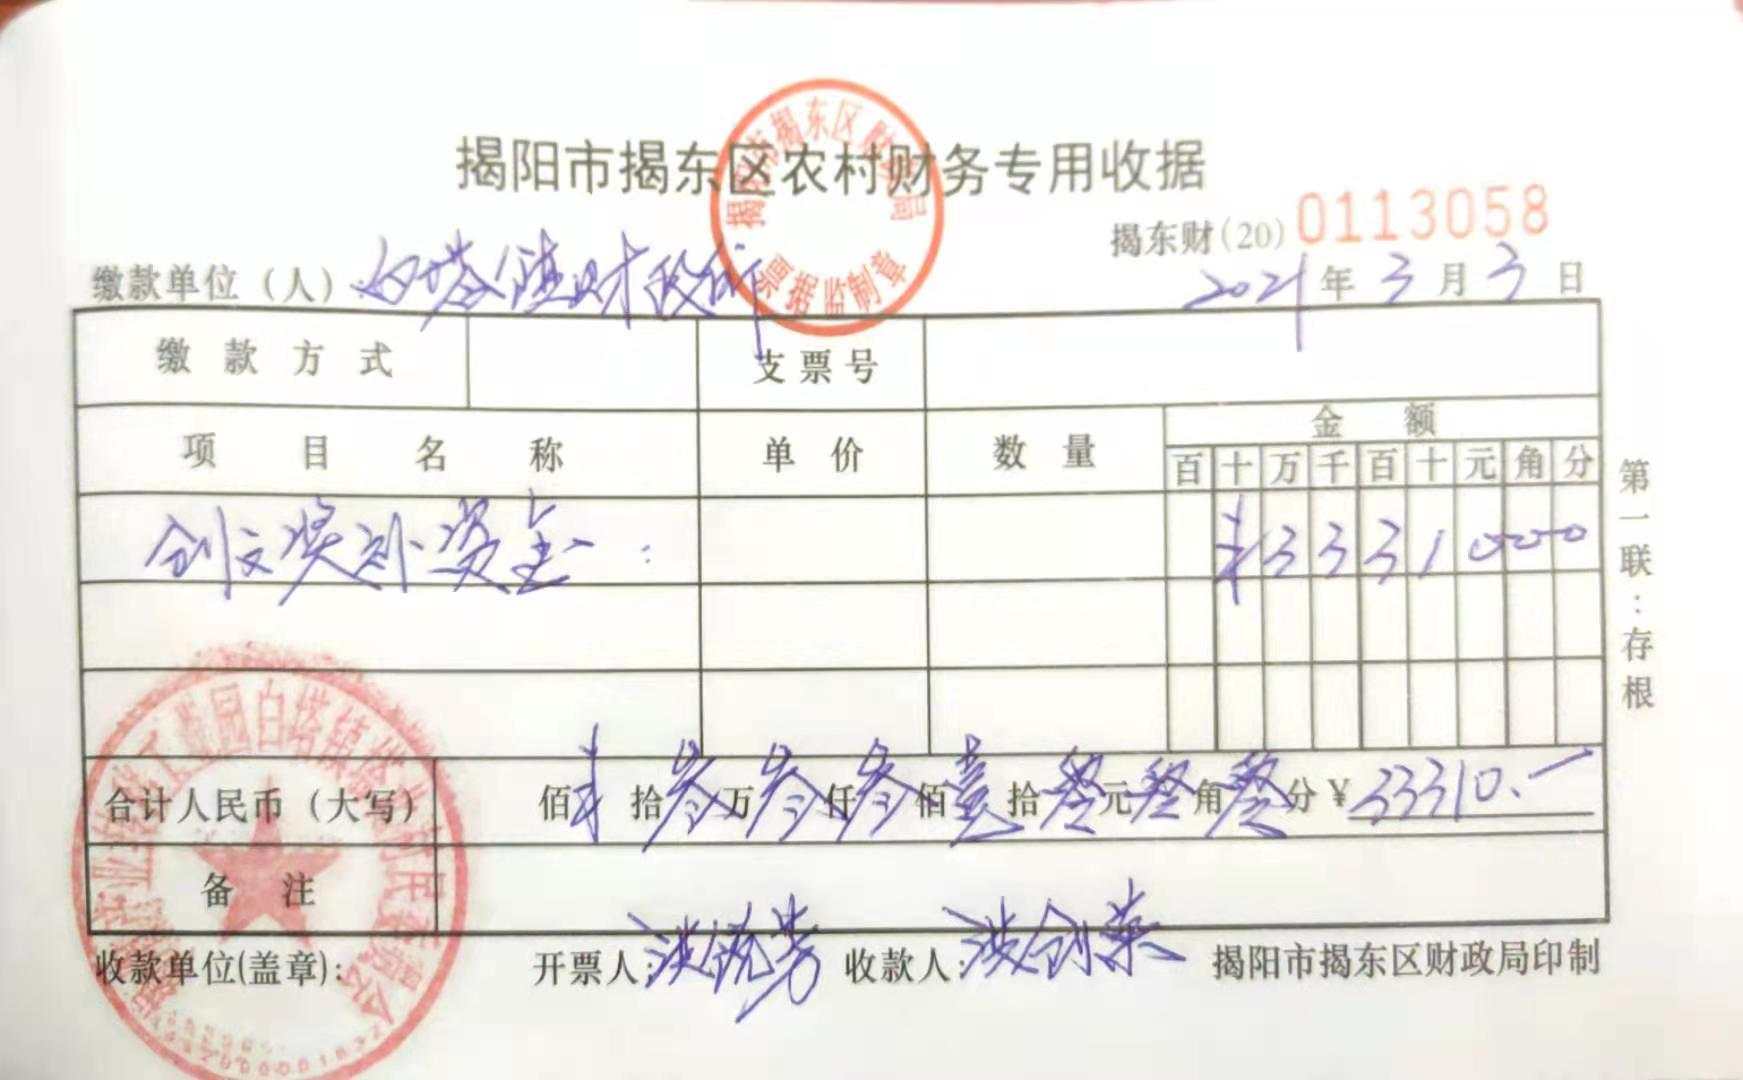 揭阳市揭东区农村财务专用收据
揭阳市揭东区财政局
票据监制章
揭东财(20) 0113058
缴款单位（人）：白塔镇财政所
2021年3月3日
缴款方式 支票号
项目名称 单价 数量 金额
百 十 万 千 百 十 元 角 分
创文奖补资金： ¥ 3 3 3 1 0 0 0
合计人民币（大写） 佰 ¥ 拾叁万叁仟叁佰壹拾零元零角零分 ¥ 33310.-
备注
收款单位(盖章): 开票人: 收款人: 揭阳市揭东区财政局印制
第一联：存根